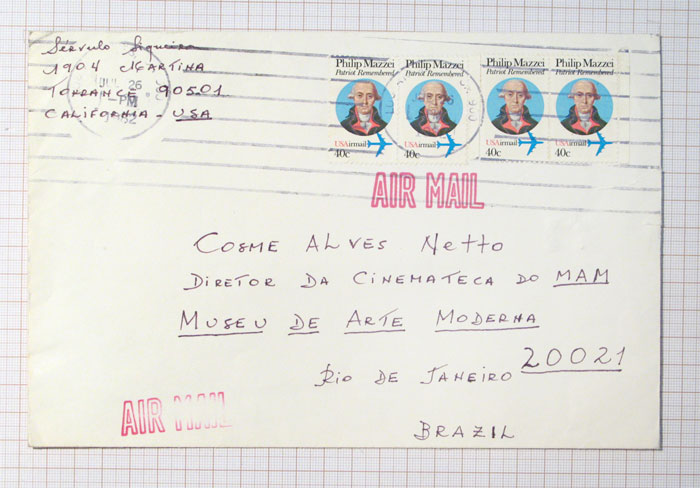 Sérvulo Siqueira
1904 Martina
Torrance 90501
California - USA
JUL 26
PM
Philip Mazzei
Patriot Remembered
USAirmail
40c
Philip Mazzei
Patriot Remembered
USAirmail
40c
Philip Mazzei
Patriot Remembered
USAirmail
40c
Philip Mazzei
Patriot Remembered
USAirmail
40c
AIR MAIL
COSME ALVES NETTO
DIRETOR DA CINEMATECA DO MAM
MUSEU DE ARTE MODERNA
20021
RIO DE JANEIRO
BRAZIL
AIR MAIL